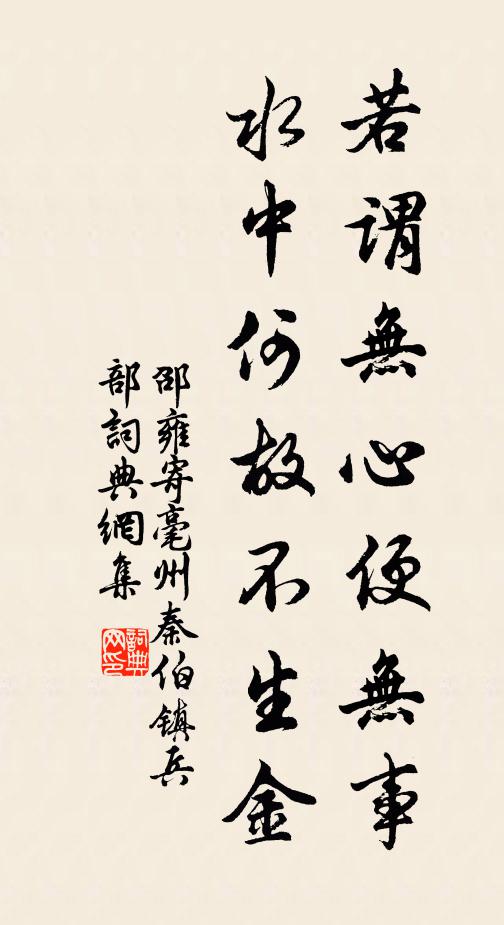 若謂無心便無事
水中何故不生金
邵雍寄亳州秦伯鎮兵
部詞典網集
詞典
网印